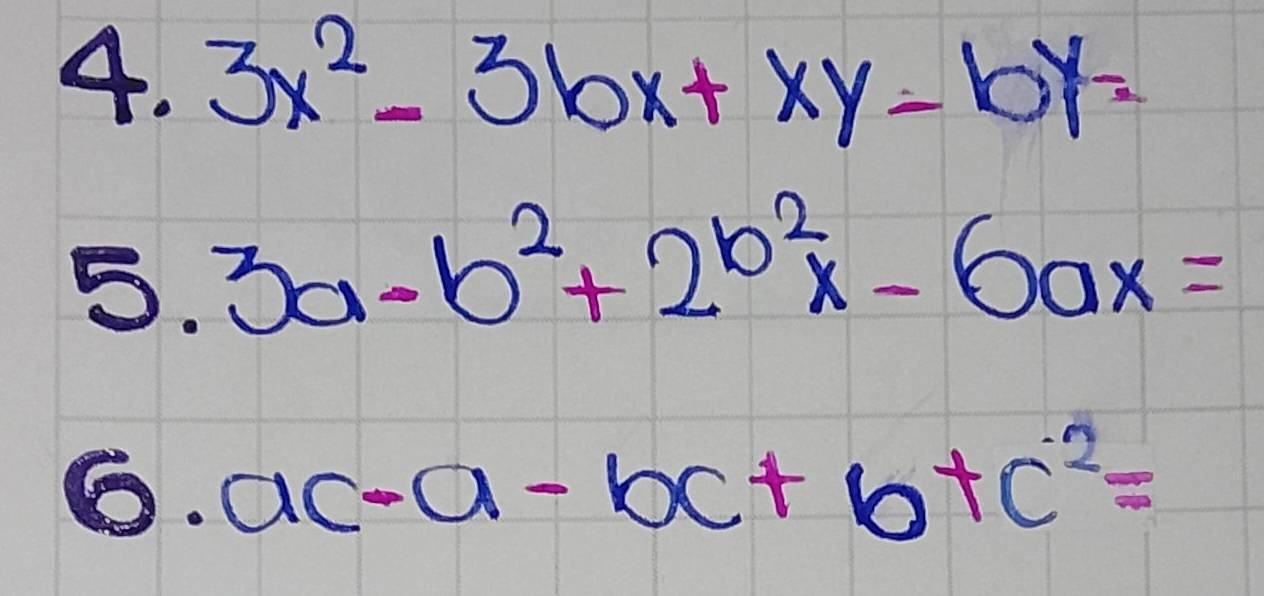 4. 3x² - 3bx + xy - by =
5. 3a - b² + 2b²x - 6ax =
6. ac - a - bc + b + c² =